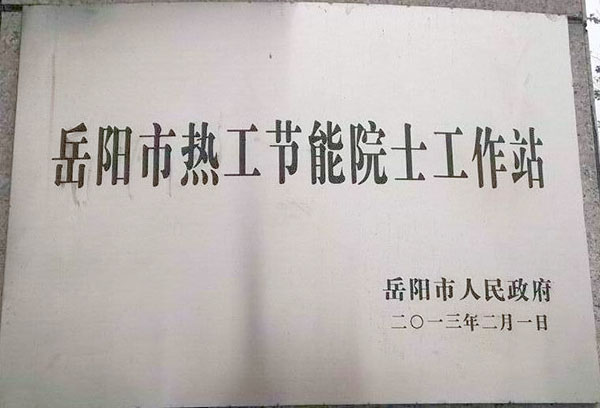 岳阳市热工节能院士工作站
岳阳市人民政府
二〇一三年二月一日